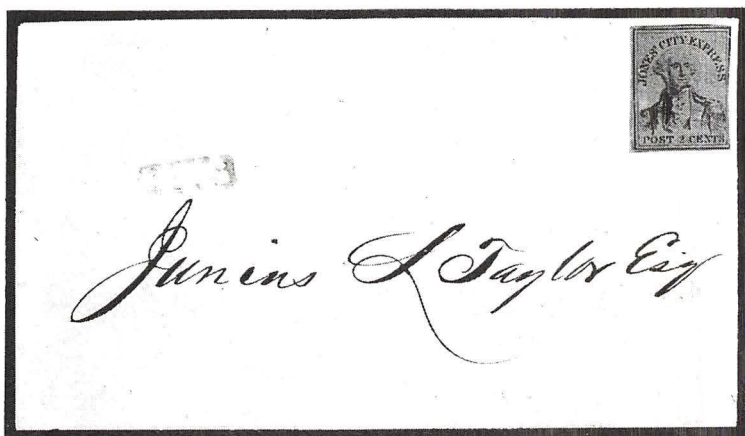 JONES' CITY EXPRESS
POST 2 CENTS
Junius L Taylor Esq